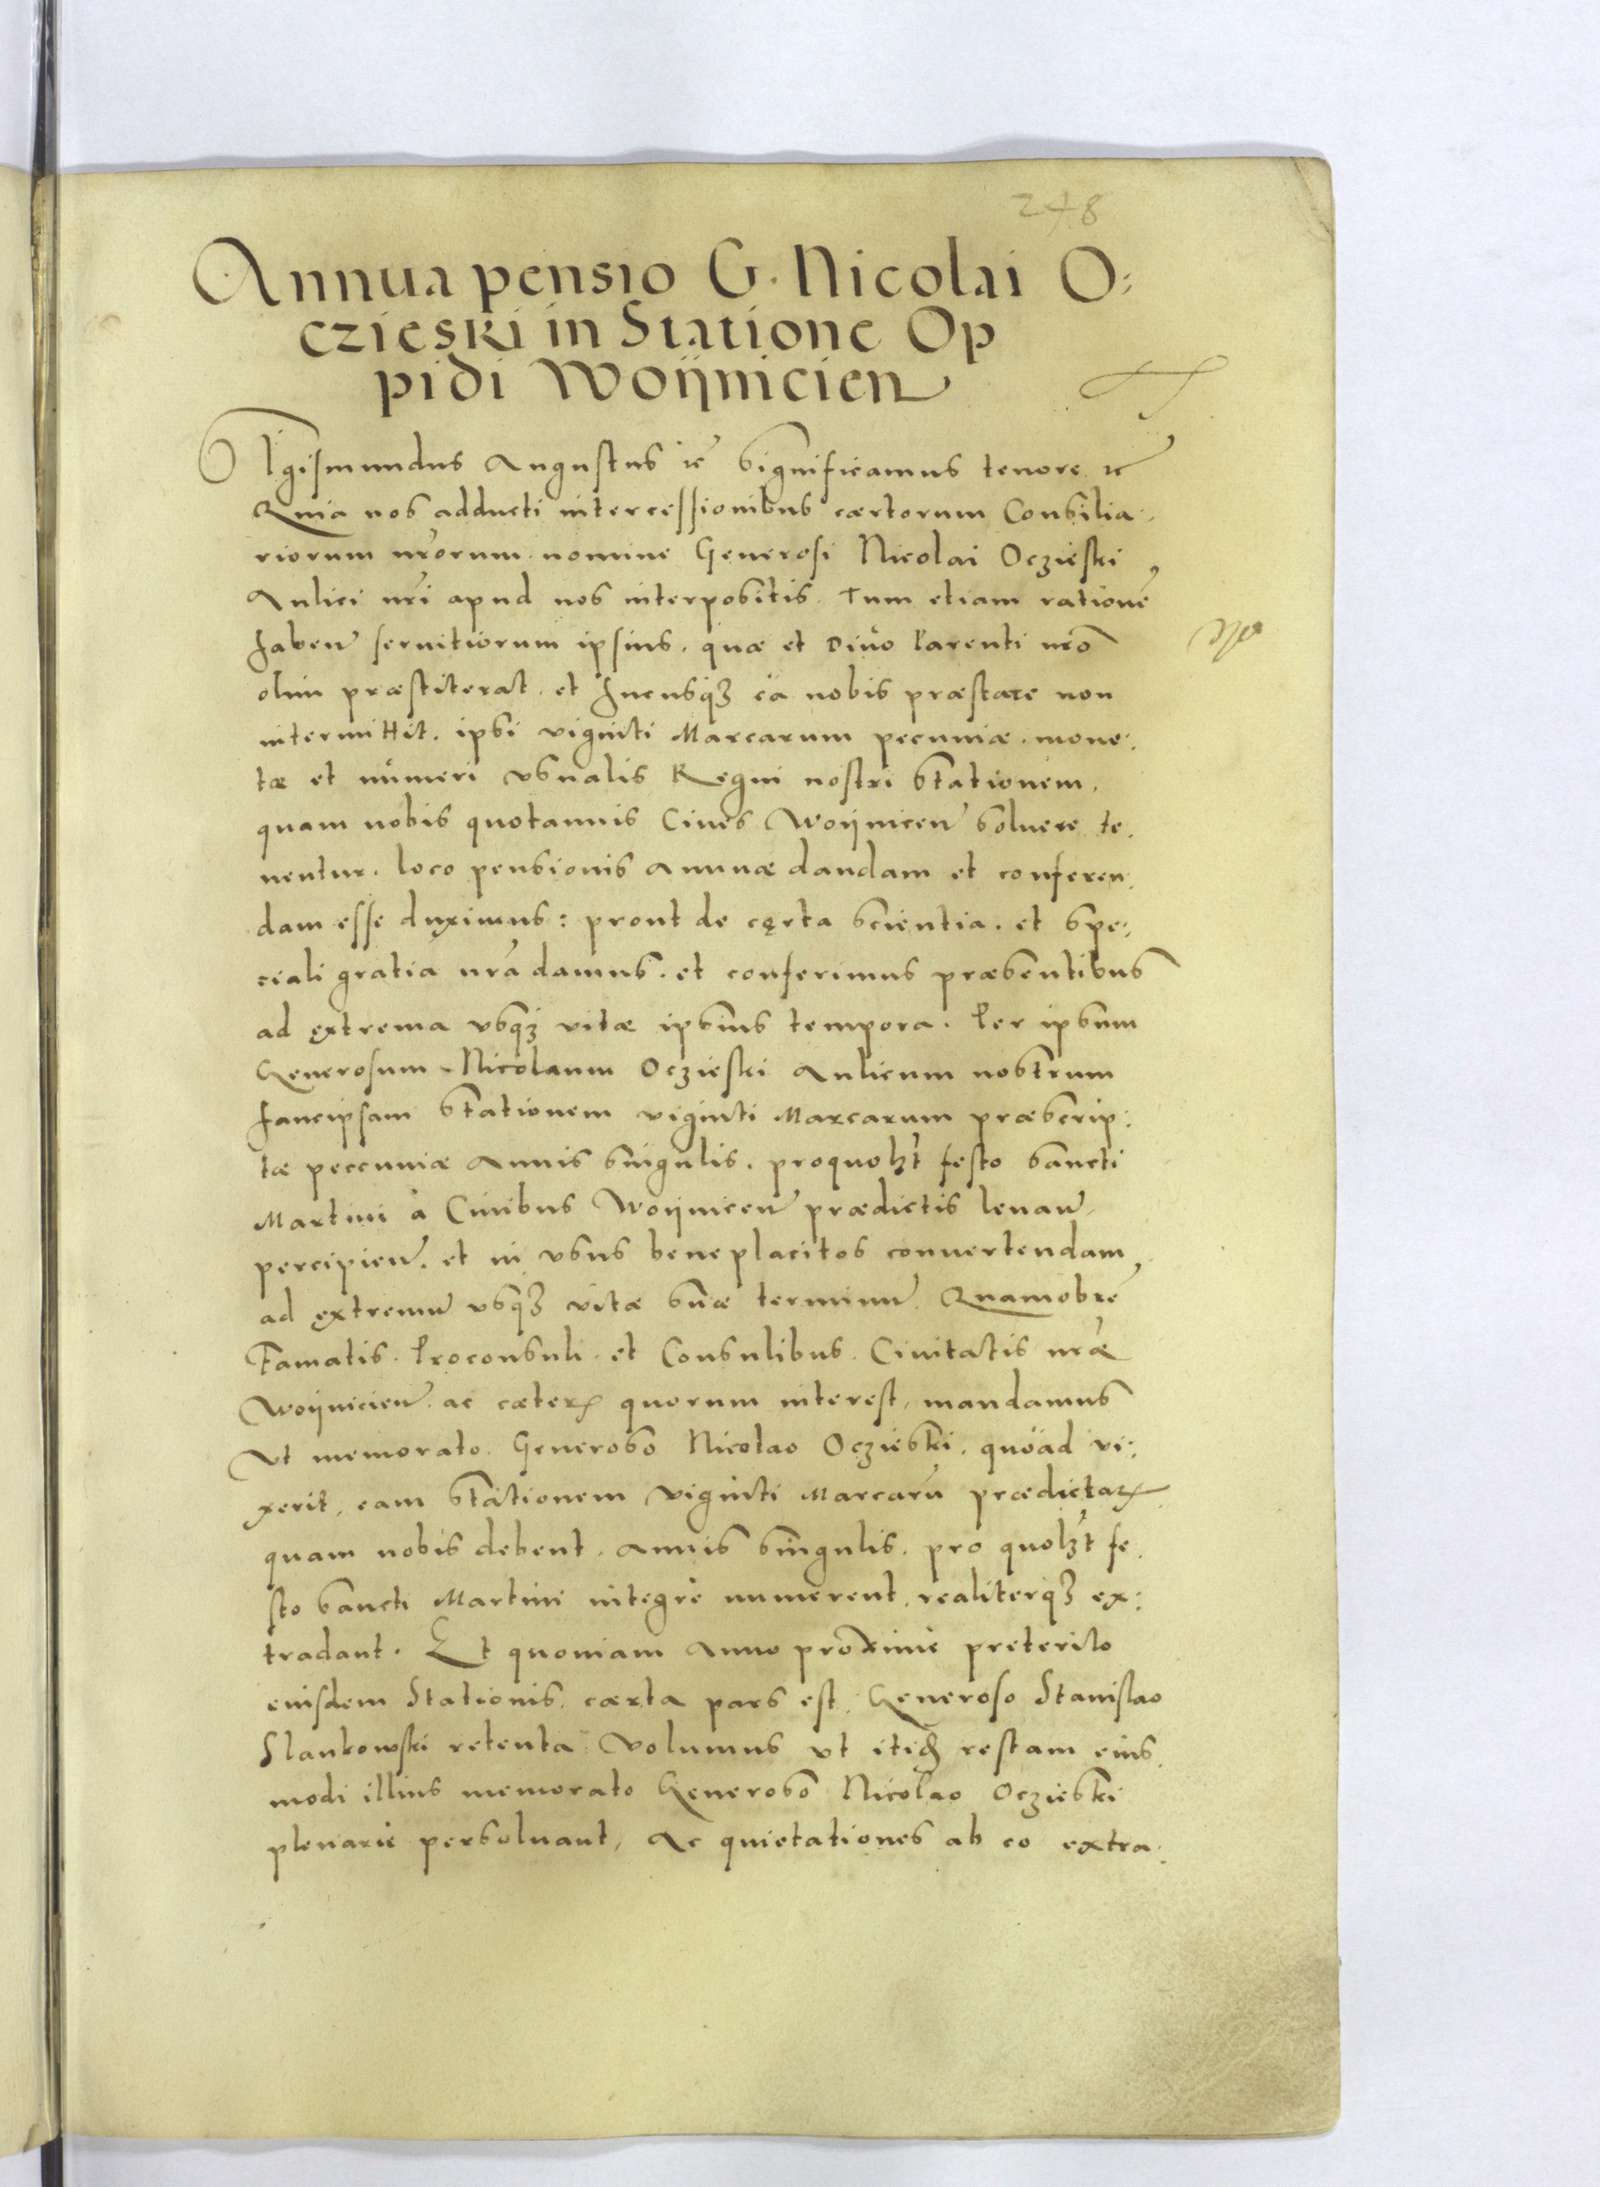 248
Annua pensio G. Nicolai O:
czieski in Statione Op
pidi Woijnicien
Sigismundus Augustus etc̃ Significamus tenore etc̃
Quia nos adducti intercessionibus cærtorum Consilia,
riorum nr̃orum nomine Generosi Nicolai Oczieski
Aulici nr̃i apud nos interpositis. Tum etiam rationẽ
haben̄ seruitiorum ipsius, quæ et Diuo Parenti nr̃o
olim præstiterat, et hucusq̃ꝫ ea nobis præstare non
intermittit, ipsi viginti Marcarum pecuniæ, mone,
tæ et numeri vsualis Regni nostri Stationem,
quam nobis quotannis Ciues Woijnicen̄ soluere te,
nentur, loco pensionis Annuæ dandam et conferen,
dam esse duximus: prout de cęrta scientia, et spe,
ciali gratia nr̃a damus, et conferimus præsentibus
ad ęxtrema vsq̃ꝫ vitæ ipsius tempora. Per ipsum
Generosum Nicolaum Oczieski Aulicum nostrum
hancipsam Stationem viginti Marcarum præscrip:
tæ peccuniæ Annis singulis, proquolꝫt festo Sancti
Martini à Ciuibus Woijnicen̄ prædictis leuan̄,
percipien̄, et in vsus beneplacitos conuertendam,
ad ęxtremũ vsq̃ꝫ vitæ suæ terminũ. Quamobrẽ
Famatis Proconsuli et Consulibus Ciuitatis nr̃æ
Woijnicien̄, ac cæterꝝ quorum interest, mandamus
Vt memorato Generoso Nicolao Oczieski, quoad vi:
xerit, eam Stationem viginti Marcarũ prædictaꝝ
quam nobis debent, Annis singulis, pro quolꝫt fe,
sto Sancti Martini integrè numerent, realiterq̃ꝫ ex:
tradant. Et quoniam Anno proximè preterito
eiusdem Stationis, cærta pars est Generoso Stanislao
Slankowski retenta Volumus vt restam eius,
modi illius memorato Generoso Nicolao Oczieski
plenariè persoluant, Ac quietationes ab eo extra,